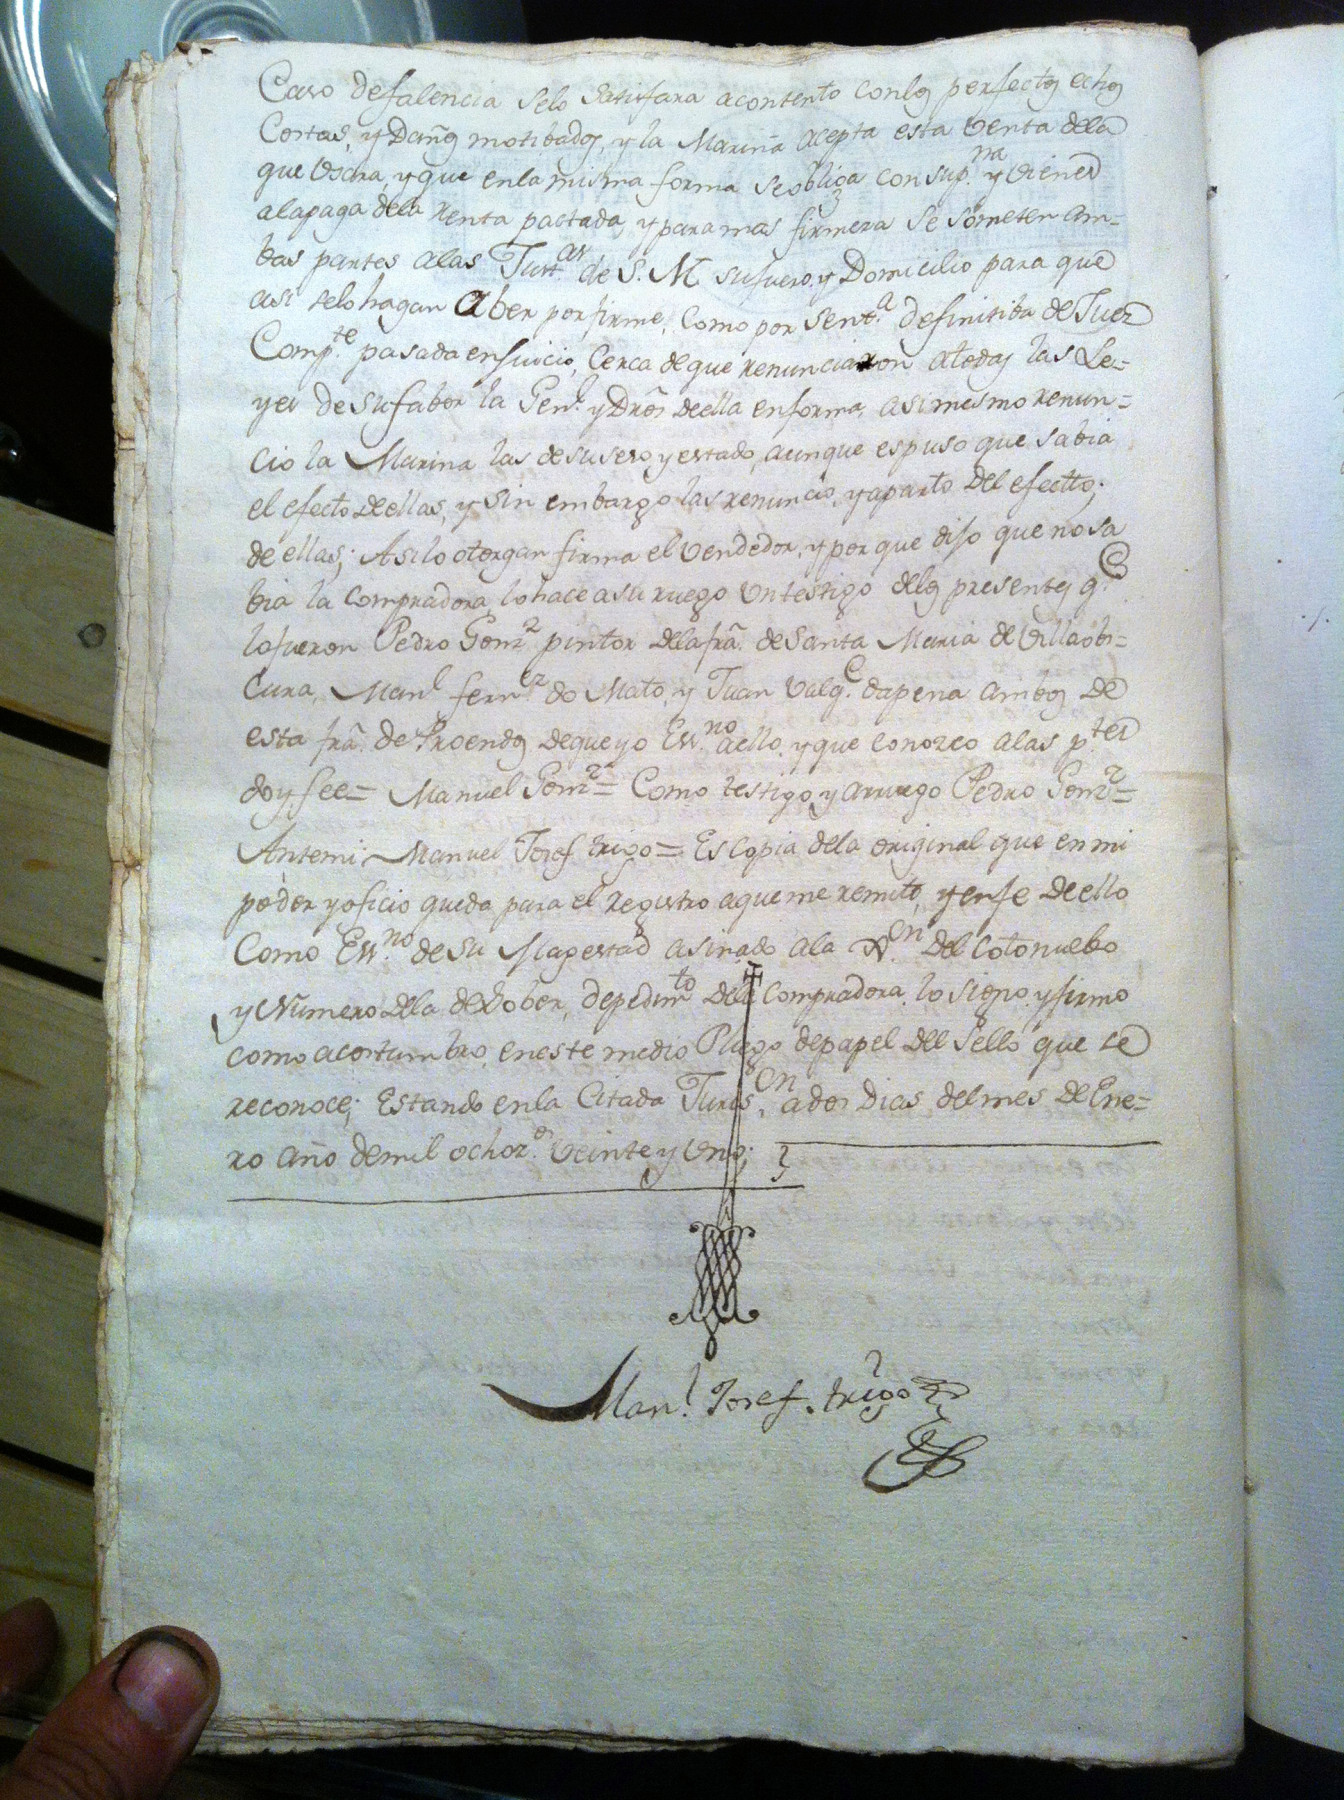 Caso defalencia selo Satisfara acontento conlos perfectos echos
Costas, y Daños motibados, y la Marina acepta esta Venta dela
que Usara, y que enla misma forma seobliga con sup.na y vienes
alapaga dela Renta pactada, y para mas firmeza se someten am=
bas partes alas Just.as de S. M sufuero, y Domicilio para que
asi selo hagan Aber por firme, Como por Sent.a definitiba de Juez
Comp.te pasada enJuicio, Cerca de que renunciaron atodas las Le=
yes de sufabor la Gen.l y Dros deella enforma, asimesmo renun=
cio la Marina las desusexo y estado, aunque espuso que sabia
el efecto deellas, y sin embargo las renuncio, y aparto del efectto;
de ellas; Asilo otorgan firma el Vendedor, y por que dijo que no sa
bia la Compradora, lo hace asu ruego Untestigo delos presentes q.e
lofueron Pedro Gonz pintor delafra. de Santa Maria de Villaobs=
Cura, Man.l fern.z do Mato, y Juan Valq.e dapena ambos de
esta fra. de Proendos dequeyo Es.no aello, y que conozco alas p.tes
doy fee= Manuel Gonz= Como testigo y arruego Pedro Gonz=
Antemi Manuel Josef trigo= Es Copia dela original que en mi
poder y oficio queda para el registro aqueme remito, y enfe deello
Como Es.no de su Magestad asinado ala J.on del Cotonuebo
y Numero dela deDober, depedim.to dela Compradora, lo signo, y firmo
como acostumbro, eneste medio Pliego depapel del Sello que se
reconoce; Estando enla Citada Juris.on ados Dias del mes de Ene=
ro año demil ochoz.s Veinte y Uno;
Man.l Josef. trigo